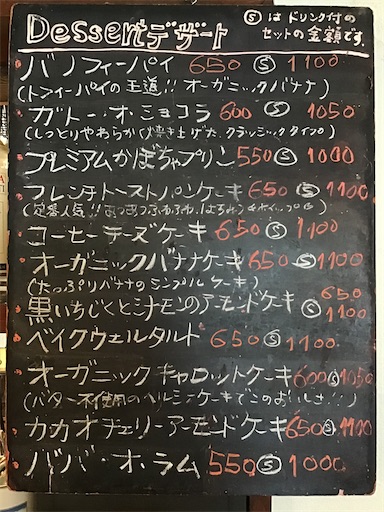 Dessertデザート
Ⓢはドリンク付の
セットの金額です。
バノフィーパイ 650 Ⓢ 1100
(トフィーパイの王道!! オーガニックバナナ)
ガトー・オ・ショコラ 600 Ⓢ 1050
(しっとりやわらかく焼き上げた、クラッシックタイプ)
プレミアムかぼちゃプリン 550 Ⓢ 1000
フレンチトーストパンケーキ 650 Ⓢ 1100
(定番人気!! あつあつふわふわ、はちみつ&ホイップ)
コーヒーチーズケーキ 650 Ⓢ 1100
オーガニックバナナケーキ 650 Ⓢ 1100
(たっぷりバナナのシンプルケーキ)
黒いちじくとシナモンのアーモンドケーキ 650 Ⓢ 1100
ベイクウェルタルト 650 Ⓢ 1100
オーガニックキャロットケーキ 600 Ⓢ 1050
(バター不使用のヘルシーケーキでこのおいしさ!!)
カカオチェリーアーモンドケーキ 650 Ⓢ 1100
ババ・オ・ラム 550 Ⓢ 1000